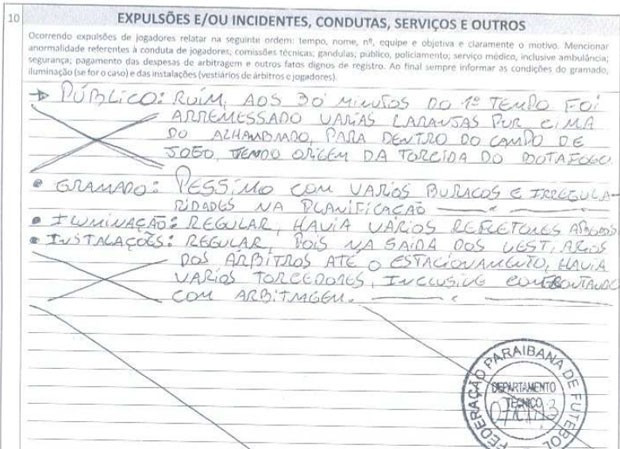 10
EXPULSÕES E/OU INCIDENTES, CONDUTAS, SERVIÇOS E OUTROS
Ocorrendo expulsões de jogadores relatar na seguinte ordem: tempo, nome, nº, equipe e objetiva e claramente o motivo. Mencionar
anormalidade referentes à conduta de jogadores, comissões técnicas, gandulas, público, policiamento, serviço médico, inclusive ambulância;
segurança; pagamento das despesas de arbitragem e outros fatos dignos de registro. Ao final sempre informar as condições do gramado,
iluminação (se for o caso) e das instalações (vestiários de árbitros e jogadores).
PÚBLICO: RUÍM, AOS 30 MINUTOS DO 1º TEMPO FOI
ARREMESSADO VARIAS LARANJAS POR CIMA
DO ALHAMBRADO, PARA DENTRO DO CAMPO DE
JOGO, TENDO ORIGEM DA TORCIDA DO BOTAFOGO.
GRAMADO: PESSÍMO COM VARIOS BURACOS E IRREGULA-
RIDADES NA PLANIFICAÇÃO
ILUMINAÇÃO: REGULAR, HAVIA VÁRIOS REFLETORES APAGADOS
INSTALAÇÕES: REGULAR, POIS NA SAIDA DOS VESTIARIOS
DOS ARBITROS ATÉ O ESTACIONAMENTO, HAVIA
VARIOS TORCEDORES, INCLUSIVE CONFRONTANDO
COM ARBITRAGEM.
FEDERAÇÃO PARAIBANA DE FUTEBOL
DEPARTAMENTO
TÉCNICO